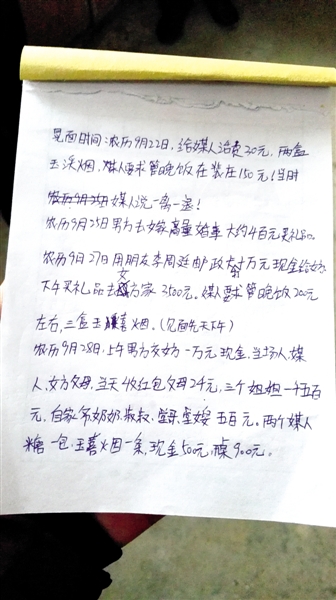 见面时间:农历9月22日,给媒人治费20元,两盒
玉溪烟,媒人要求管晚饭在装在150元(当时
媒人说一离一退!
农历9月25日男方去嫁商量婚事大约4百元买礼品。
农历9月27日用朋友李周廷邮政付1万元现金给
下午买礼品去女方家3500元。媒人要求管晚饭200元
左右,三盒玉喜烟。(见面先天下午)
农历9月28日,上午男方交女方一万元现金,当场人,媒
人,女方父母,当天收红包父母24元,三个姐姐一千五百
元,自家爷奶奶,叔叔,五百元。两个媒人
糖一包,玉喜烟一条,现金50元,900元。